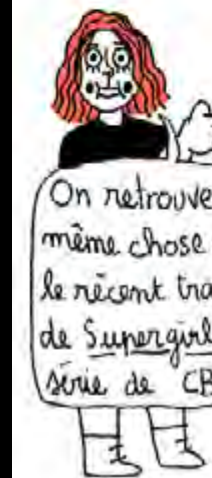 On retrouve
même chose
le récent tra
de Supergirl
série de CB